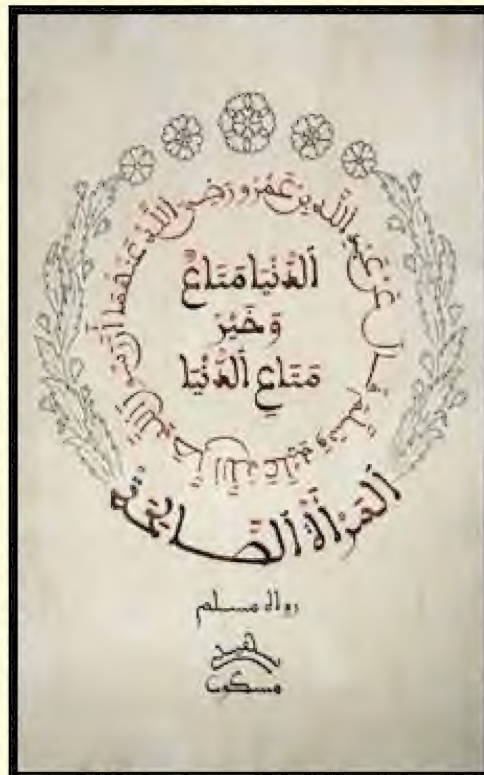 عَنْ عَبْدِ اللَّهِ بْنِ عَمْرٍو رَضِيَ اللَّهُ عَنْهُمَا أَنَّ رَسُولَ اللَّهِ صَلَّى اللَّهُ عَلَيْهِ وَسَلَّمَ قَالَ
اَلدُّنْيَا مَتَاعٌ
وَخَيْرُ
مَتَاعِ اَلدُّنْيَا
اَلْمَرْأَةُ اَلصَّالِحَةُ
رواه مسلم